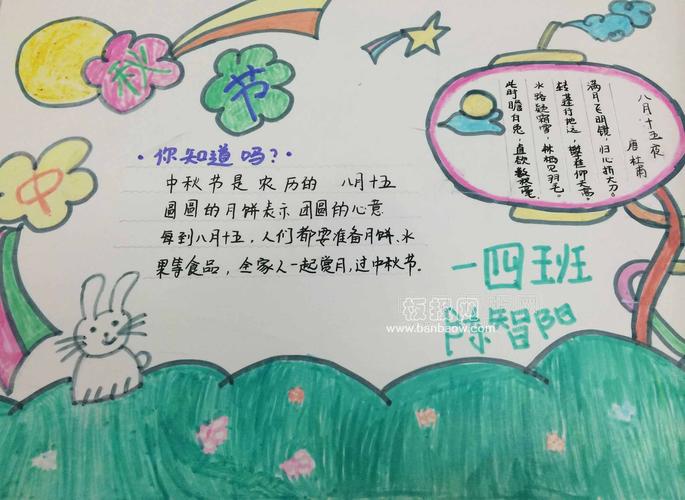 中
秋
节
·你知道吗?·
中秋节是农历的 八月十五
圆圆的月饼表示团圆的心意
每到八月十五,人们都要准备月饼、水
果等食品,全家人一起赏月,过中秋节.
八月十五夜
唐杜甫
满月飞明镜,归心折大刀。
转蓬行地远,攀桂仰天高。
水路疑霜雪,林栖见羽毛。
此时瞻白兔,直欲数秋毫。
一四班
陈智阳
板报网
www.banbaow.com